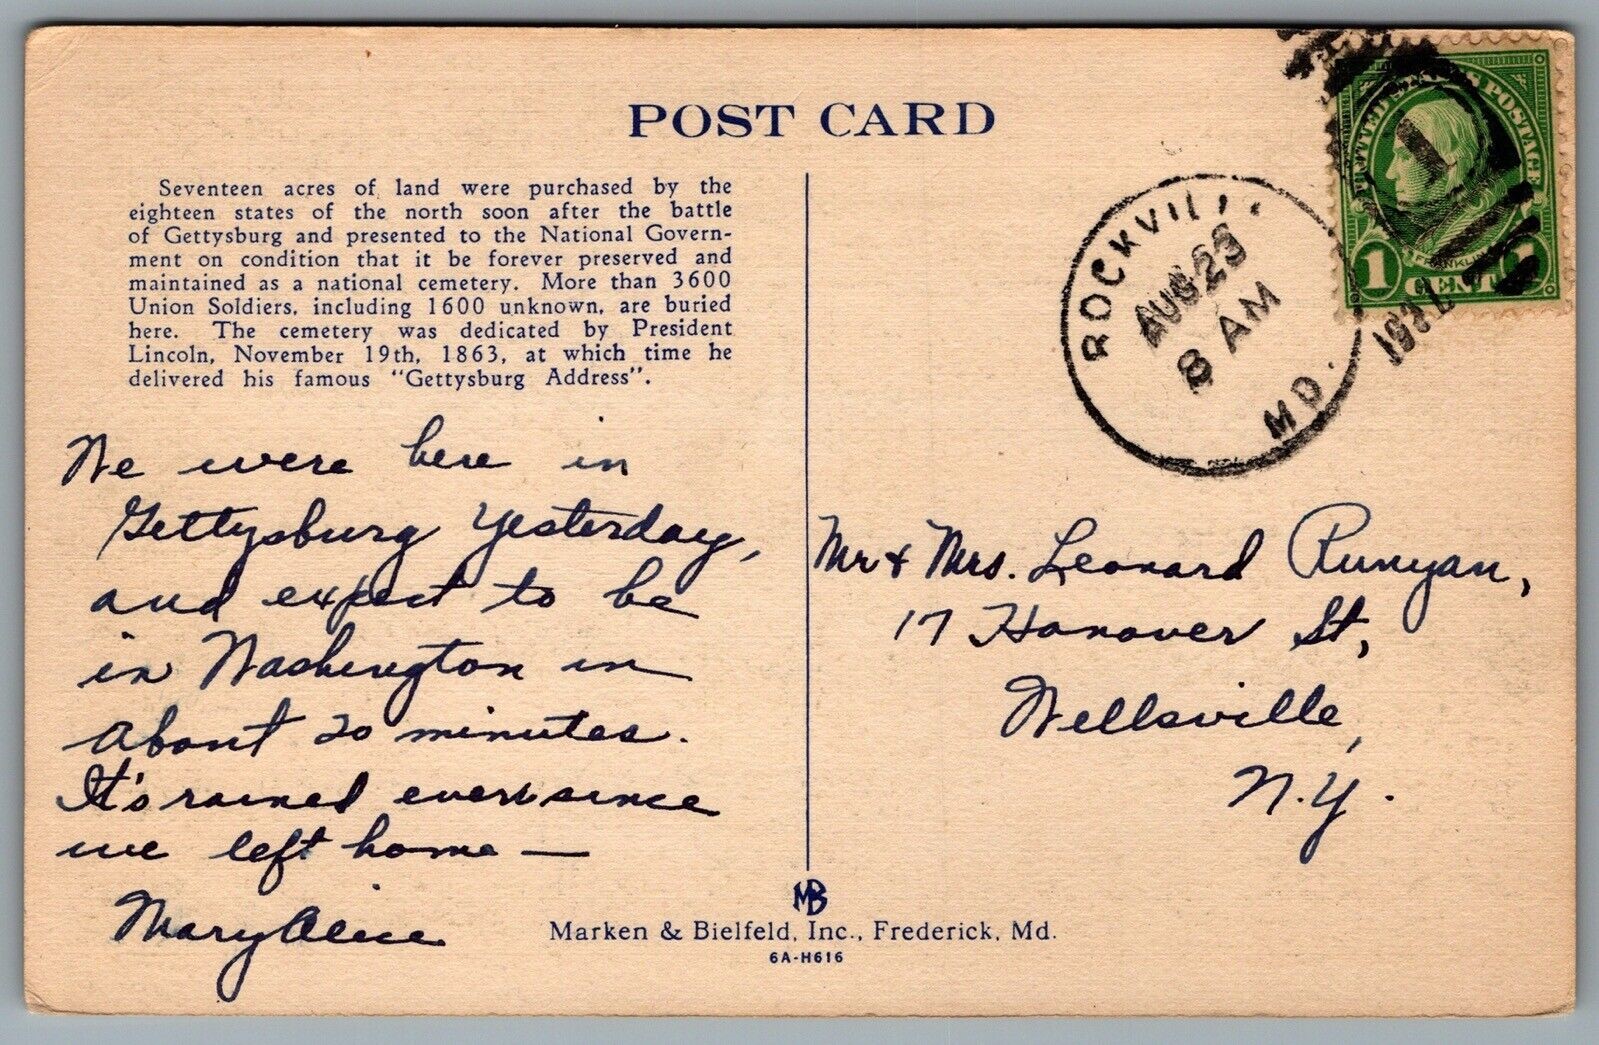 POST CARD
Seventeen acres of land were purchased by the
eighteen states of the north soon after the battle
of Gettysburg and presented to the National Govern-
ment on condition that it be forever preserved and
maintained as a national cemetery. More than 3600
Union Soldiers, including 1600 unknown, are buried
here. The cemetery was dedicated by President
Lincoln, November 19th, 1863, at which time he
delivered his famous "Gettysburg Address".
We were here in
Gettysburg yesterday,
and expect to be
in Washington in
about 20 minutes.
It's rained ever since
we left home —
Mary Alice
ROCKVILL
AUG 23
8 AM
MD.
UNITED STATES POSTAGE
FRANKLIN
1 CENT 1
Mr & Mrs. Leonard Runyan,
17 Hanover St,
Wellsville,
N.Y.
MB
Marken & Bielfeld, Inc., Frederick, Md.
6A-H616